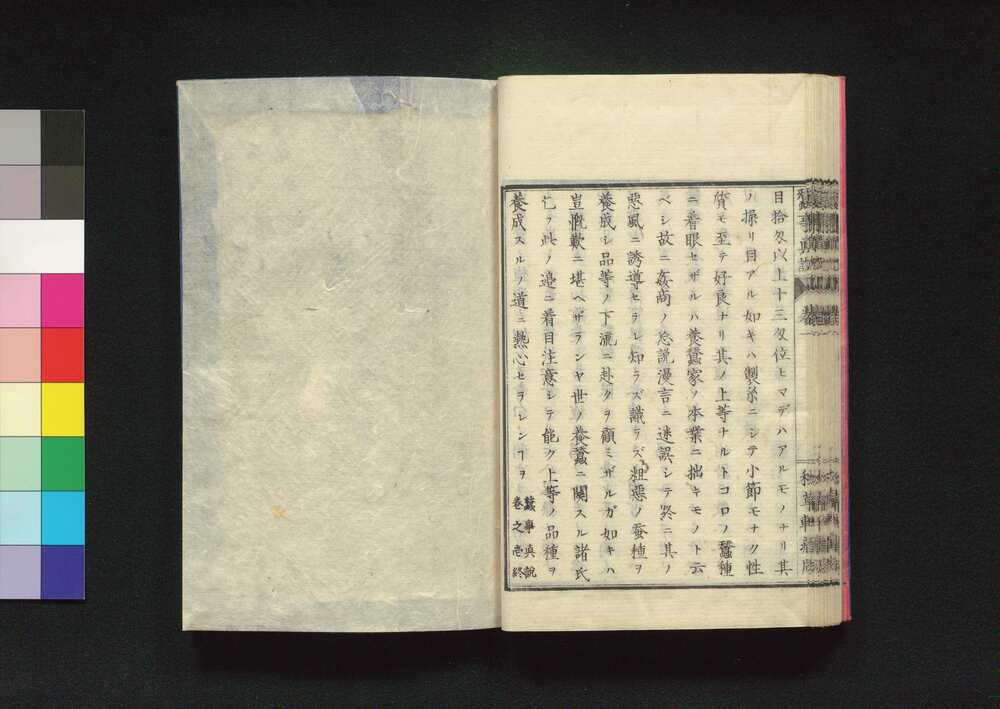 目拾匁以上十三匁位ヒマデハアルモノナリ其
ノ操リ目アル如キハ製糸ニシテ小節モナク性
質モ至テ好良ナリ其ノ上等ナルトコロノ蠶種
ニ着眼セザルハ養蠶家ノ本業ニ拙キモノト云
ベシ故ニ姦商ノ忽説漫言ニ迷誤シテ終ニ其ノ
悪風ニ誘導セラレ知ラズ識ラズ粗悪ノ蚕種ヲ
養成シ品等ノ下流ニ赴クヲ顧ミザルガ如キハ
豈慨歎ニ堪ヘザランヤ世ノ養蠶ニ関スル諸氏
此ノ邉ニ着目注意シテ能ク上等ノ品種ヲ
養成スルノ道ニ熱心セラレンヿヲ
蠶事真説
巻之壱終